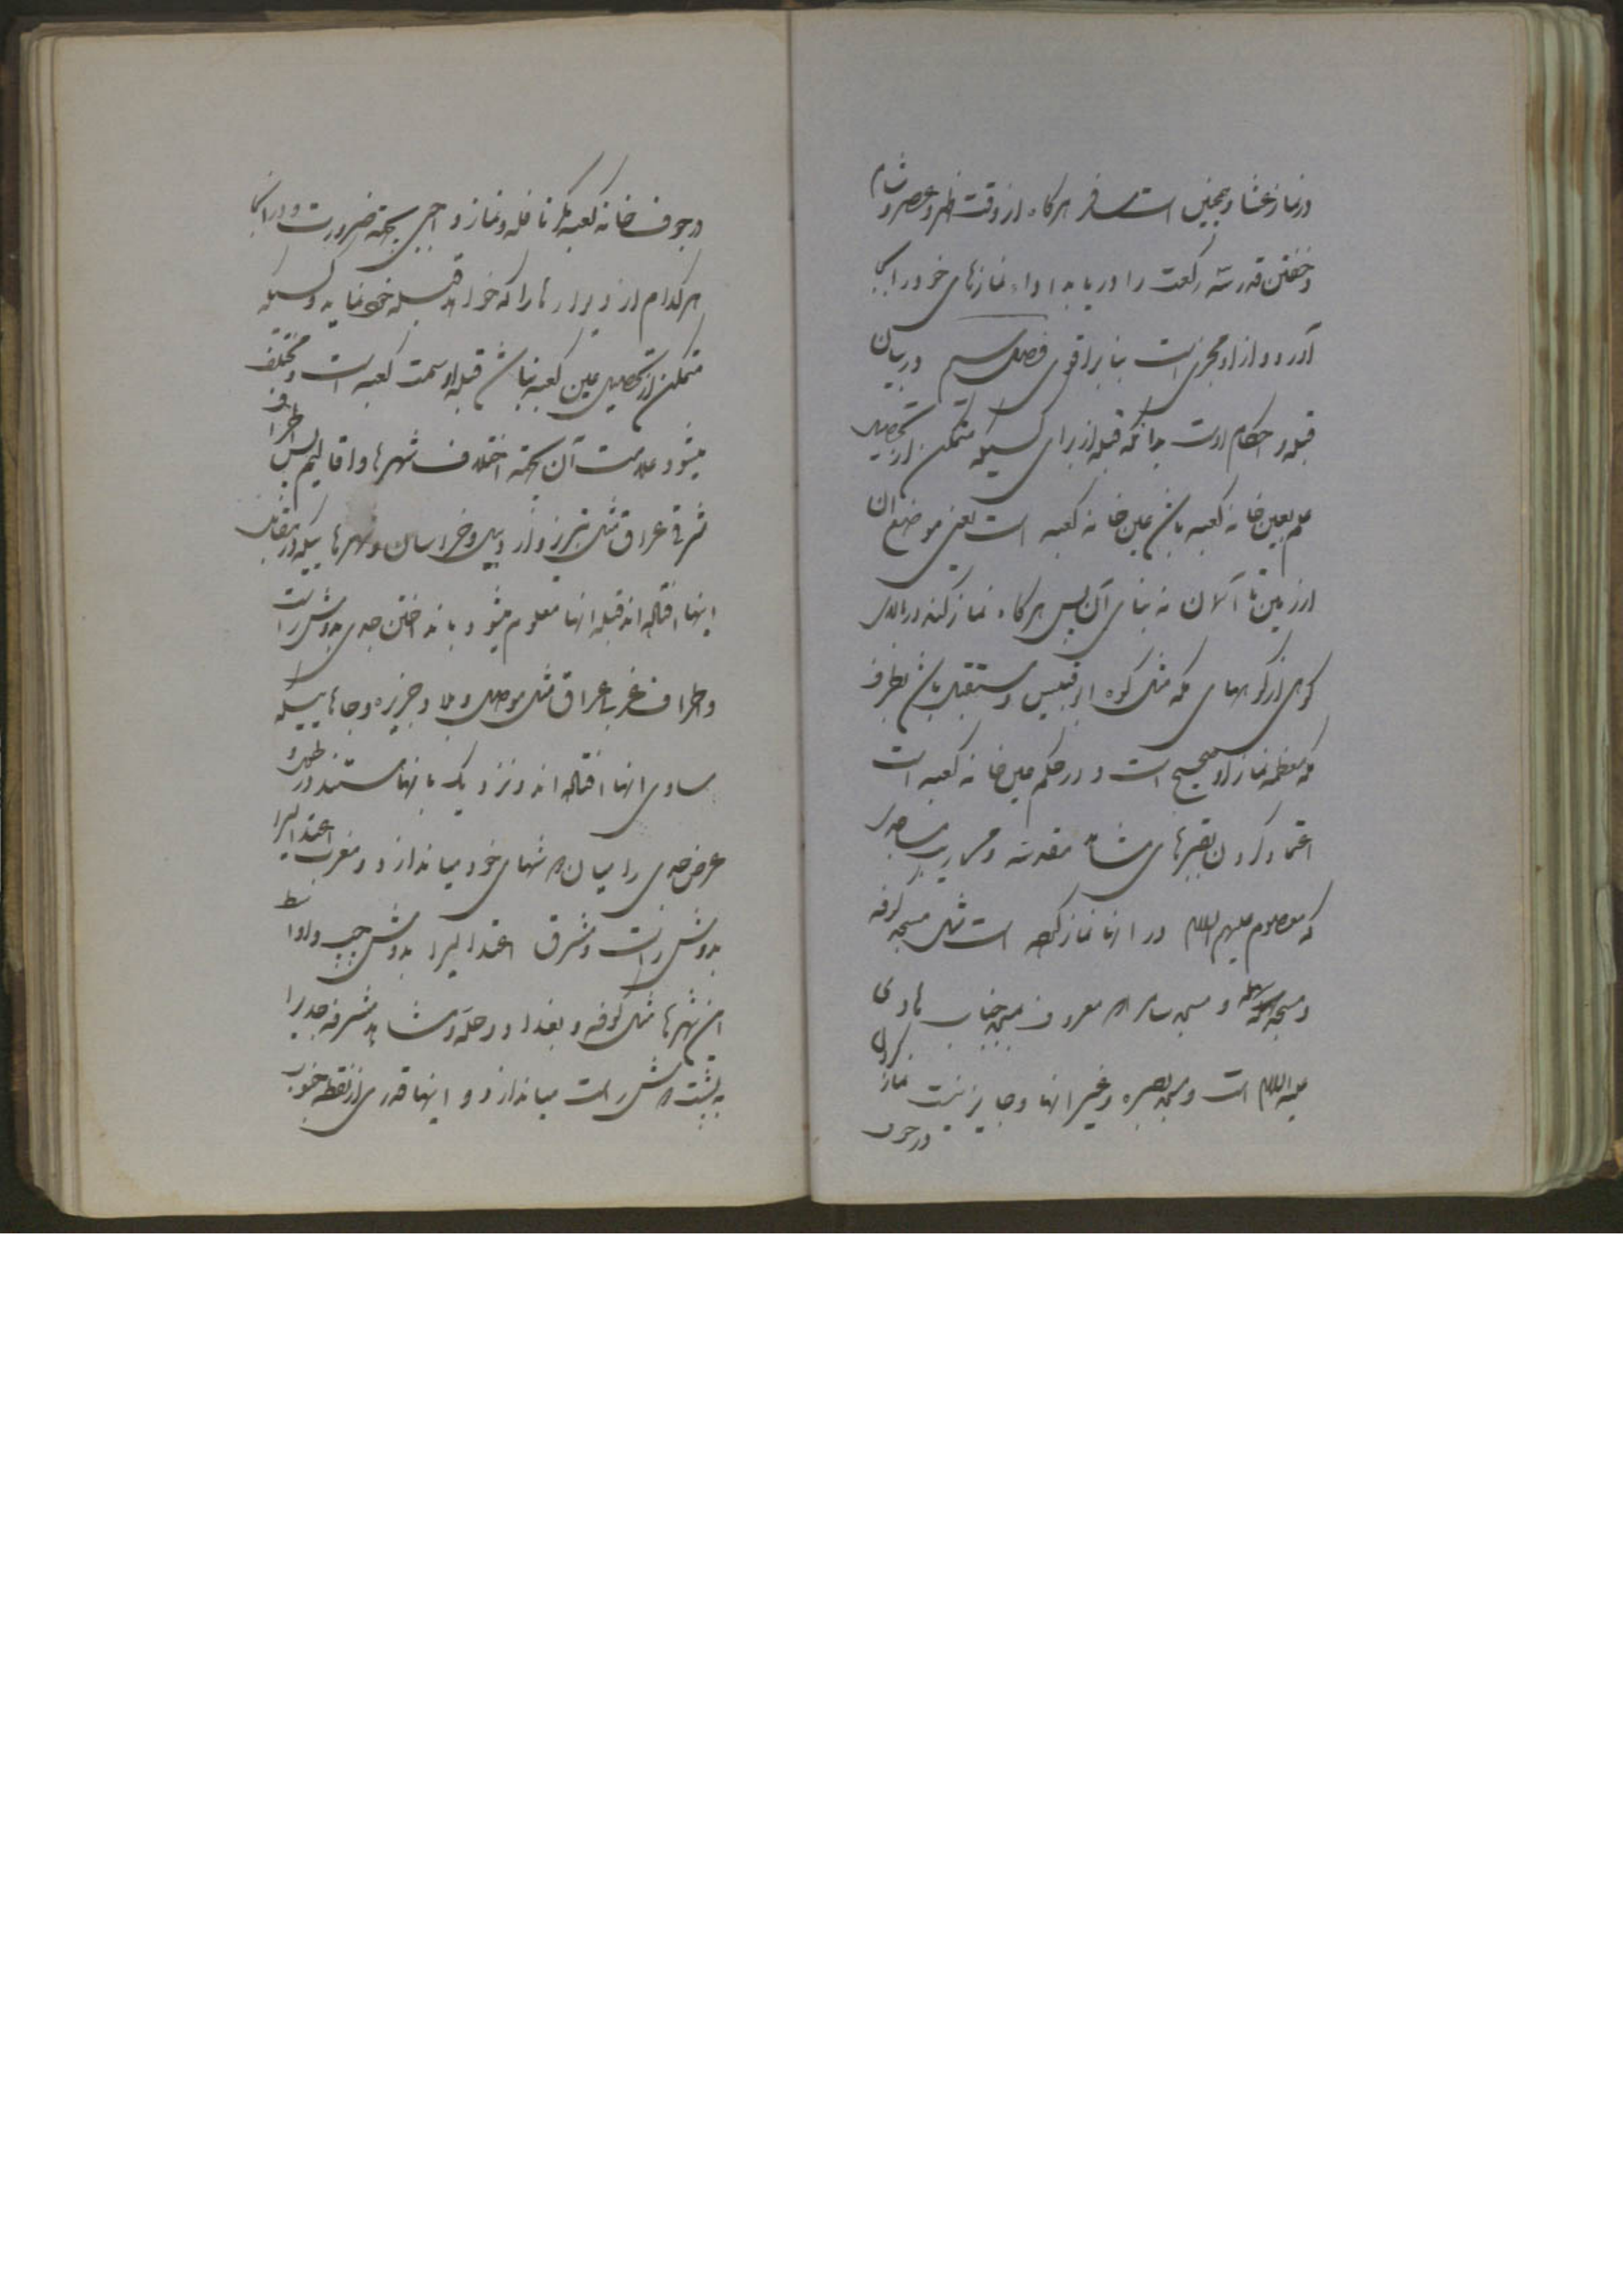 در نماز عشا و همچنین است مسافر هرگاه از وقت ظهر و عصر و شام
و خفتن قدر سه رکعت را دریابد اداء نمازهای خود را بجا
آورد و از او مجزی است بنا بر اقوی فصل سیم در بیان
قبله و احکام اوست بدانکه قبله از برای کسیکه متمکن از تحصیل
علم بعین خانه کعبه باشد عین خانه کعبه است یعنی موضع ان
از زمین تا آسمان نه بنای آن پس هرگاه نماز کند در بالای
کوهی از کوههای مکه مثل کوه ابوقبیس و مستقبل باشد بطرف
مکه معظمه نماز او صحیح است و در حکم عین خانه کعبه است
اعتماد کردن بقبرهای مشاهد مقدسه و محاریب مساجدی
که معصوم علیهم السلام در انها نماز کرده است مثل مسجد کوفه
و مسجد سهله و مسجد سامره معروف بمسجد جناب هادی
علیه السلام است و مسجد بصره و غیر انها و جایز نیست نماز کردن
در جوف
در جوف خانه کعبه مگر نافله و نماز واجبی بجهة ضرورت و در انجا
هر کدام از دیوارها را که خواهد قبله خود نماید و کسیکه
متمکن از تحصیل عین کعبه نباشد قبله او سمت کعبه است و مختلف
میشود علامت آن بجهة اختلاف شهرها و اقالیم پس اطراف
شرقی عراق مثل تبریز و اردبیل و خراسان و شهرهاییکه در مقابل
اینها افتاده اند قبله انها معلوم میشود بانداختن جدی بدوش راست
و اطراف غربی عراق مثل موصل و جزیره و جاهاییکه
مساوی انها افتاده اند و نزدیک بانها هستند در طول و
عرض جدی را میان دوشهای خود میاندازد و مغرب اعتدالیرا
بدوش راست و مشرق اعتدالیرا بدوش چپ و اواسط
این شهرها مثل کوفه و بغداد و حله و مشاهد مشرفه جدیرا
به پشت دوش راست میاندازد و اینها قدری از نقطه جنوب